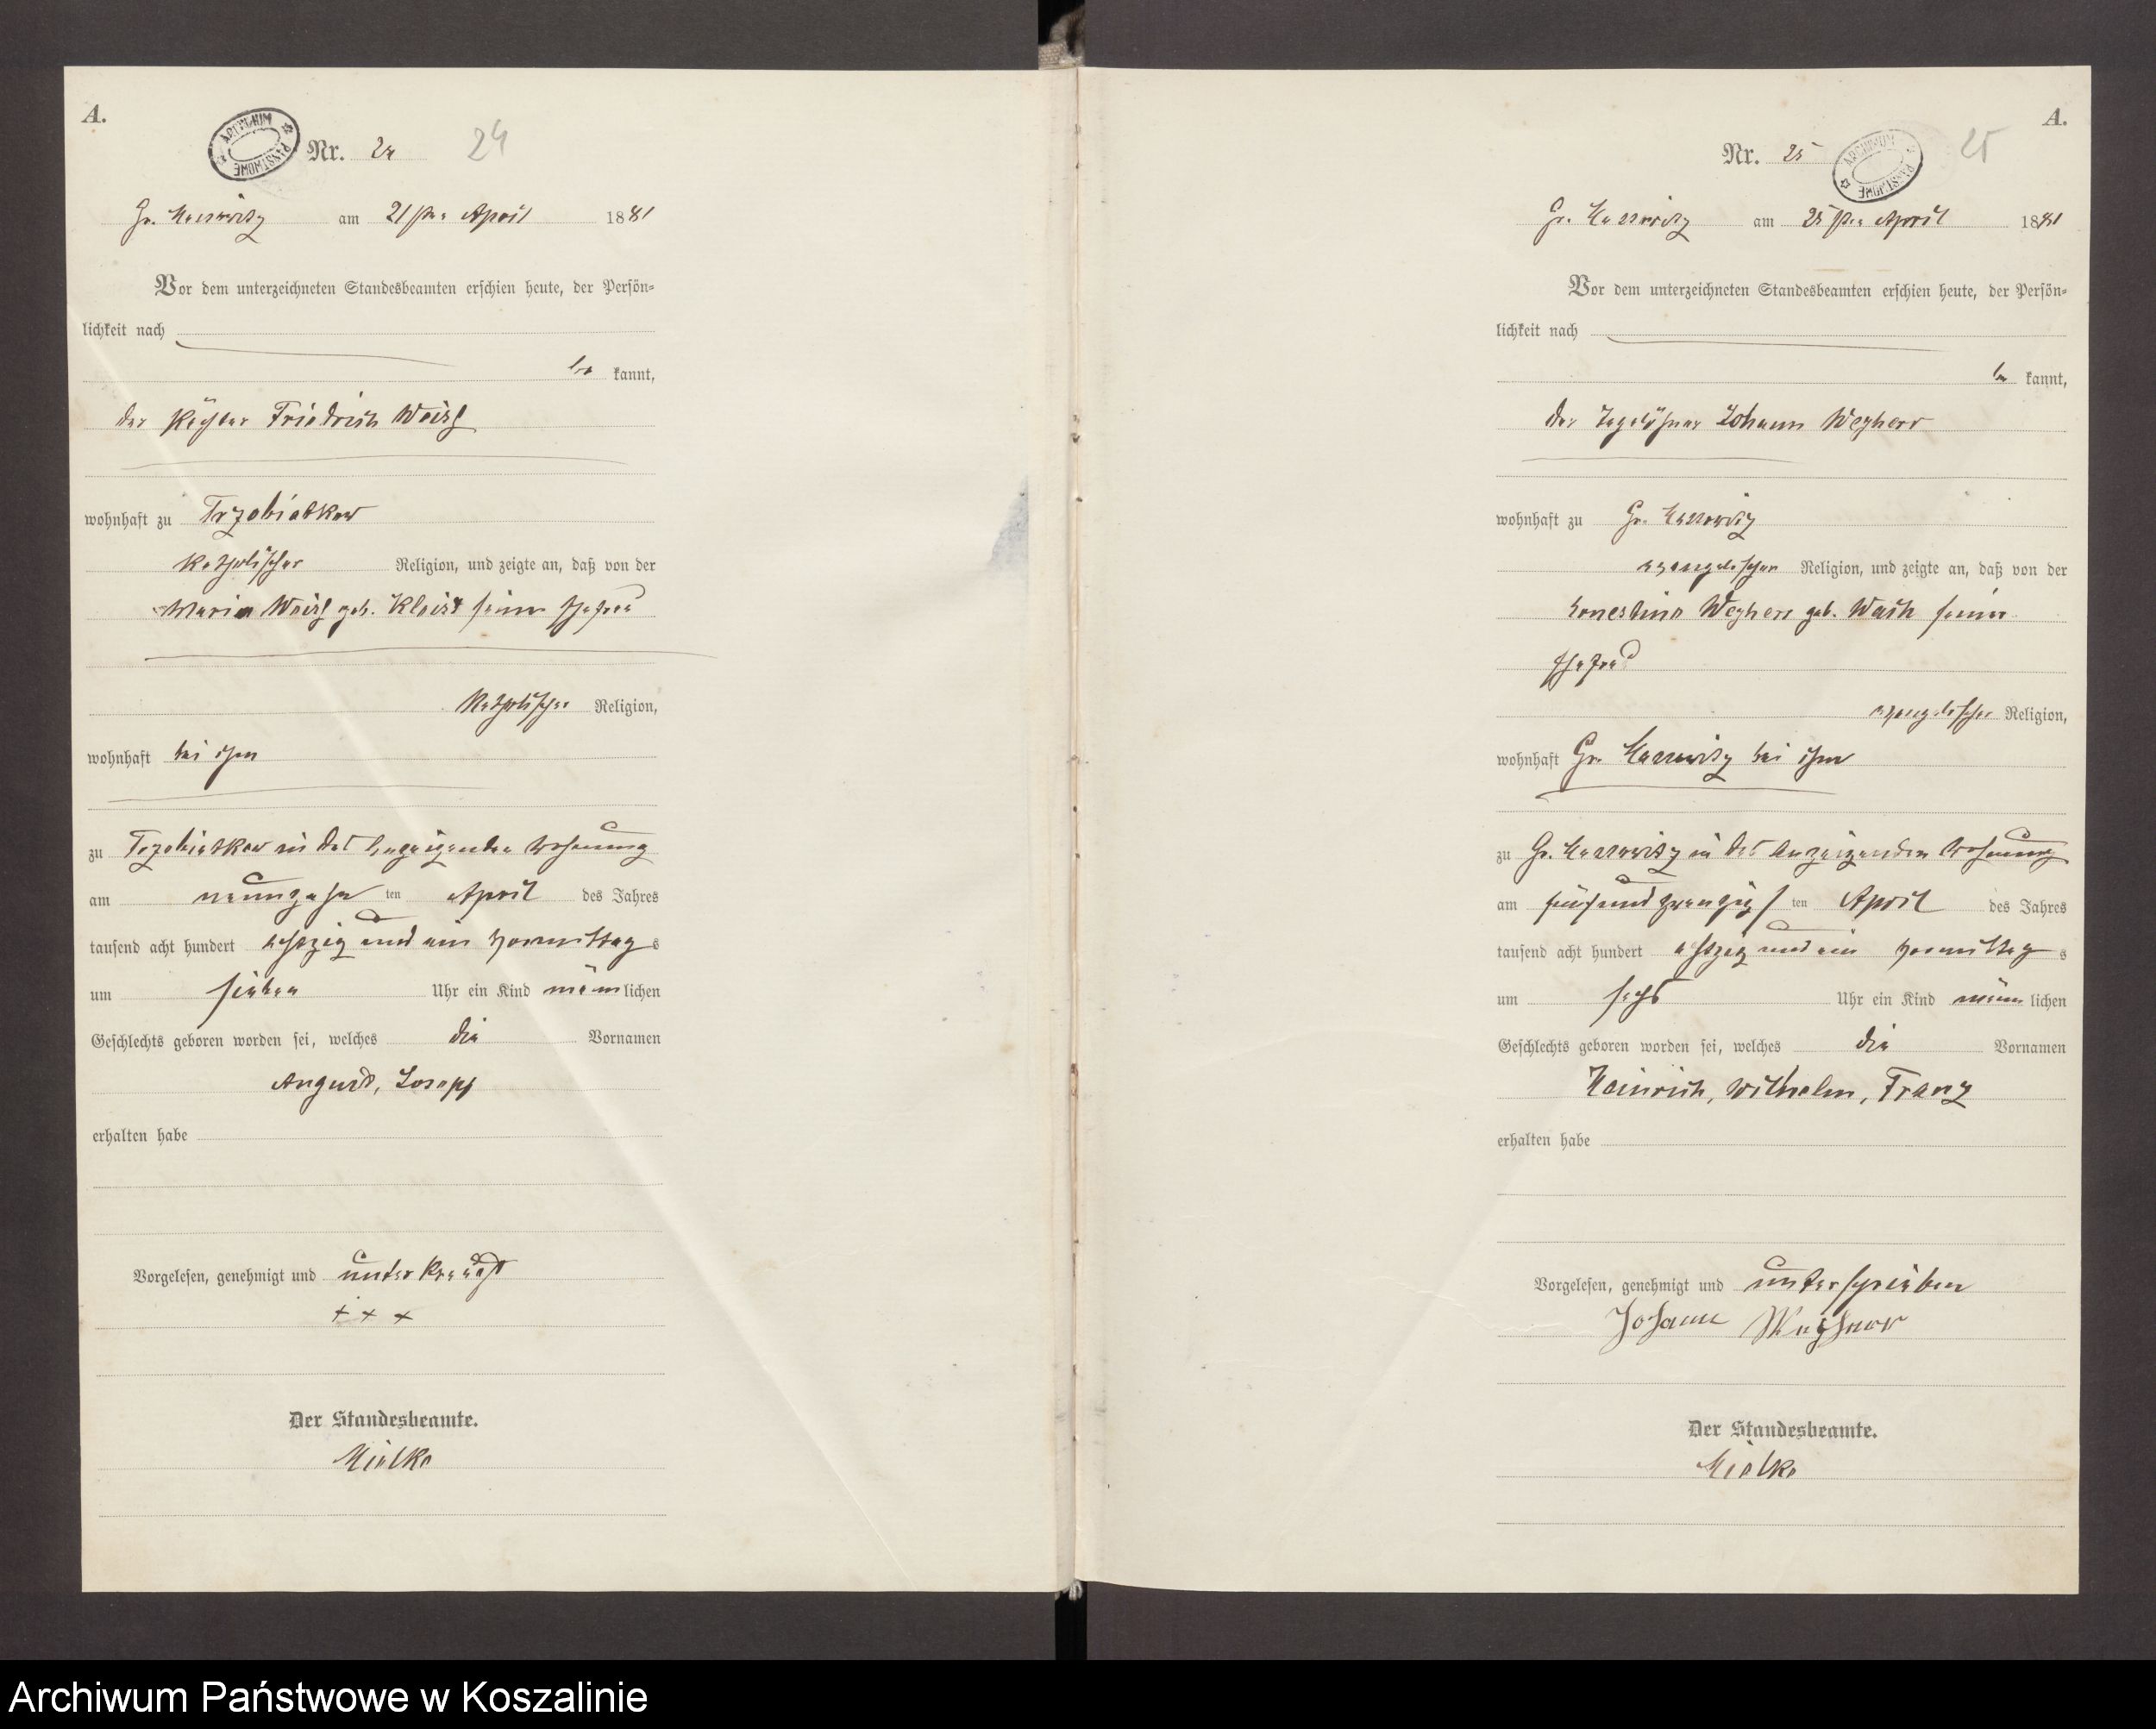 A.
ARCHIWUM PAŃSTWOWE
Nr. 24
24
Gr. Massowitz am 21ten April 1881
Vor dem unterzeichneten Standesbeamten erschien heute, der Persön-
lichkeit nach
be kannt,
der Pächter Friedrich Weiß
wohnhaft zu Trzebiatkow
katholischer Religion, und zeigte an, daß von der
Maria Weiß geb. Kleist seiner Ehefrau
katholischer Religion,
wohnhaft bei ihm
zu Trzebiatkow in des Anzeigenden Wohnung
am neunzehn ten April des Jahres
tausend acht hundert achtzig und ein Vormittag s
um sieben Uhr ein Kind männ lichen
Geschlechts geboren worden sei, welches die Vornamen
August, Joseph
erhalten habe
Vorgelesen, genehmigt und unterkreuzt
+ + +
Der Standesbeamte.
Mielke
A.
Nr. 25
ARCHIWUM PAŃSTWOWE
25
Gr. Massowitz am 25ten April 1881
Vor dem unterzeichneten Standesbeamten erschien heute, der Persön-
lichkeit nach
be kannt,
der Tagelöhner Johann Wegherr
wohnhaft zu Gr. Massowitz
evangelischer Religion, und zeigte an, daß von der
Ernestine Wegherr geb. seiner
Ehefrau
evangelischer Religion,
wohnhaft Gr. Massowitz bei ihm
zu Gr. Massowitz in des Anzeigenden Wohnung
am fünfundzwanzigs ten April des Jahres
tausend acht hundert achtzig und ein Vormittag s
um sechs Uhr ein Kind männ lichen
Geschlechts geboren worden sei, welches die Vornamen
Heinrich, Wilhelm, Franz
erhalten habe
Vorgelesen, genehmigt und unterschrieben
Johann
Der Standesbeamte.
Mielke
Archiwum Państwowe w Koszalinie